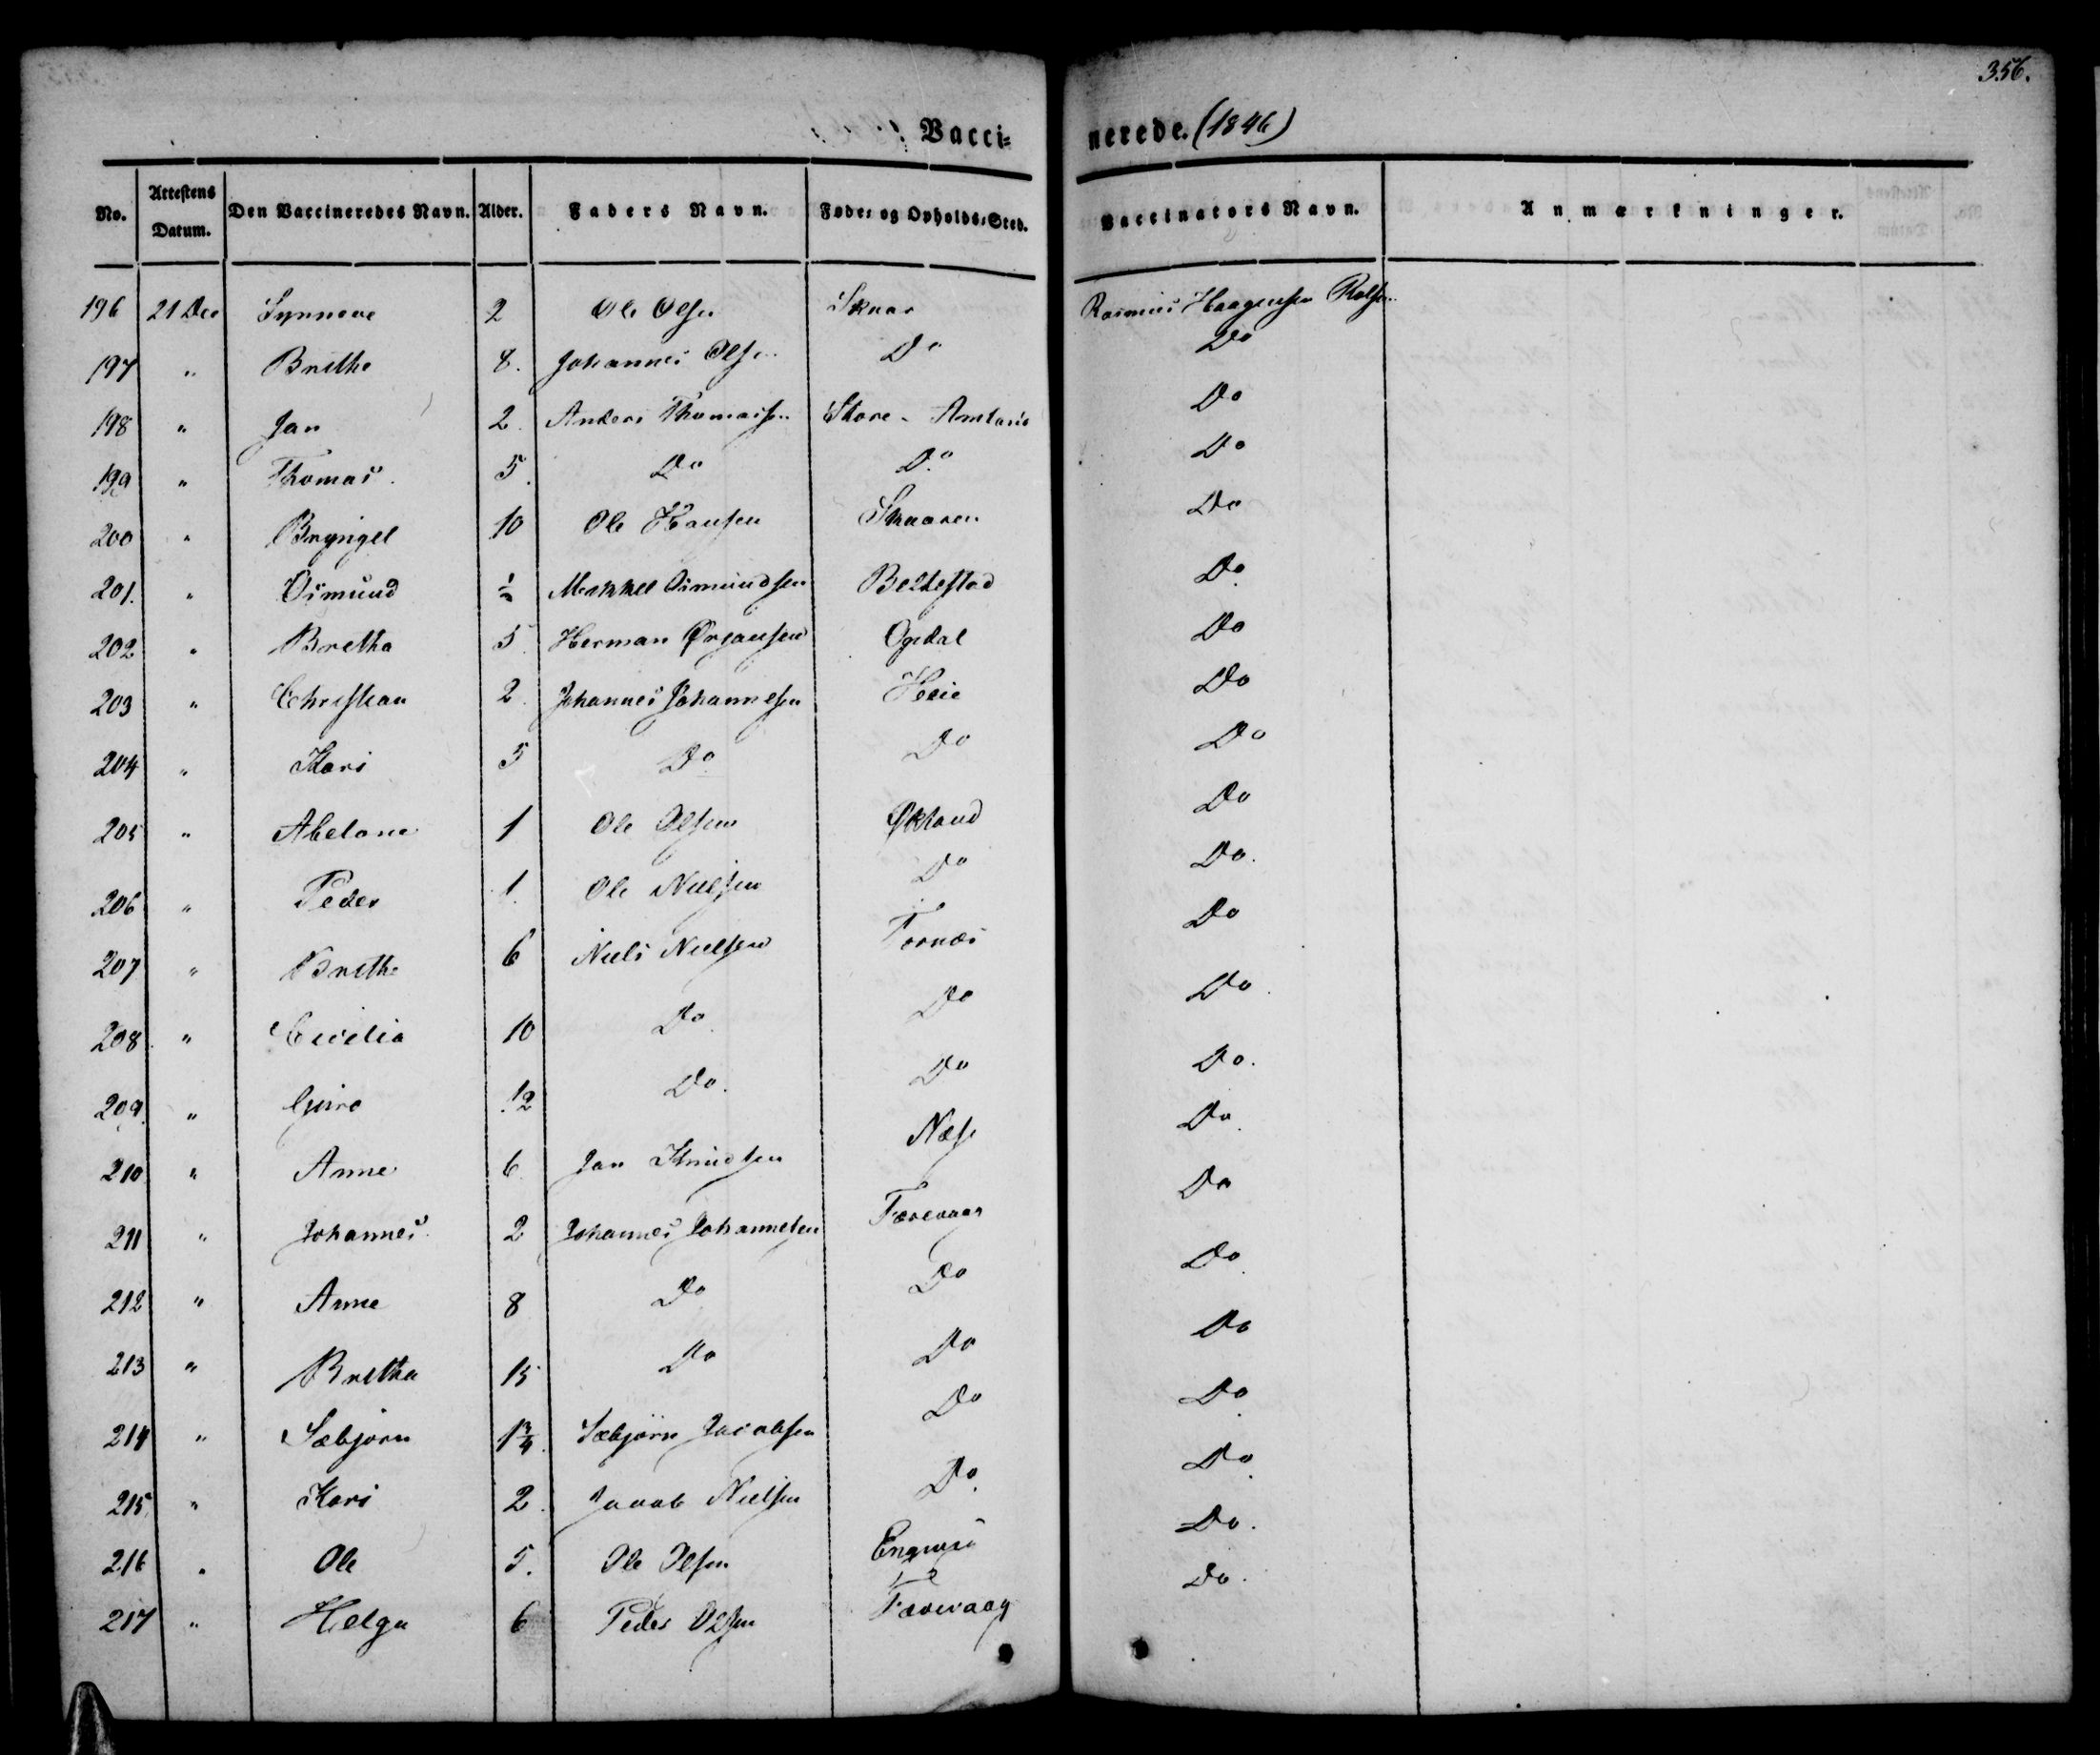 356.
Vaccinerede. (1846)
No. Attestens Datum. Den Vaccineredes Navn. Alder. Faders Navn. Føde- og Opholds-Sted. Vaccinators Navn. Anmærkninger.
196 21 Dec Synneve 2 Ole Olsen Skaar Rasmus Haagensen Rolfsn..
197 " Brithe 8. Johannes Olsen Do Do
198 " Jan 2. Anders Thomassen Store - Do
199 " Thomas. 5. Do Do Do
200 " Bryngel 10 Ole Hansen Skaaren Do
201. " Osmund ½ Mikkel Osmundsen Beltestad Do
202 " Bretha 5. Herman Ørjansen Opdal Do
203 " Christian 2. Johannes Johannesen Do
204 " Kari 5 Do Do Do
205 " Abelone 1 Ole Olsen Økland Do
206 " Peder 1. Ole Nielsen Do Do.
207 " Brithe 6 Niels Nielsen Do
208 " Cicelia 10 Do Do Do.
209. " Guro 12 Do. Do Do.
210 " Anne 6 Jan Knudsen Næse Do
211 " Johannes 2 Johannes Johannesen Færevaag Do
212 " Anne 8 Do Do Do
213 " Britha 15 Do Do Do
214 " Sæbjørn 1¾. Sæbjørn Jacobsen Do Do
215 " Kari 2. Jacob Nielsen Do. Do
216 " Ole 5. Ole Olsen Do.
217 " Helga 6 Peder Olsen Færevaag Do.